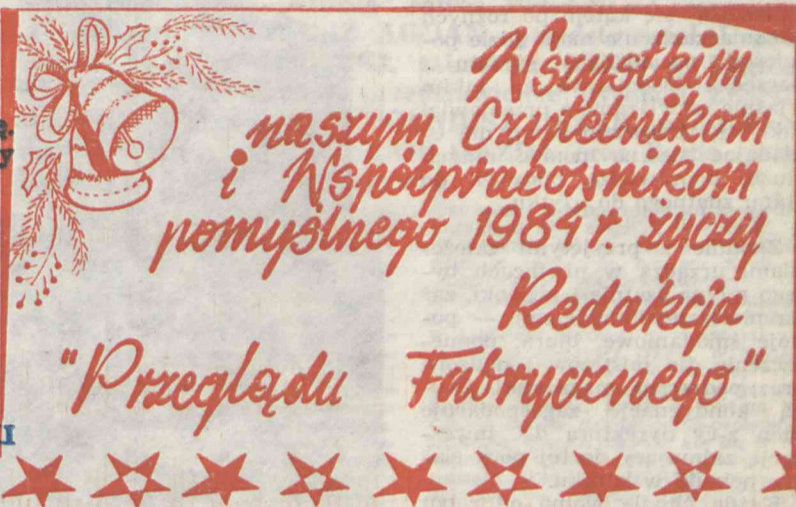 Wszystkim
naszym Czytelnikom
i Współpracownikom
pomyślnego 1984 r. życzy
Redakcja
"Przeglądu Fabrycznego"